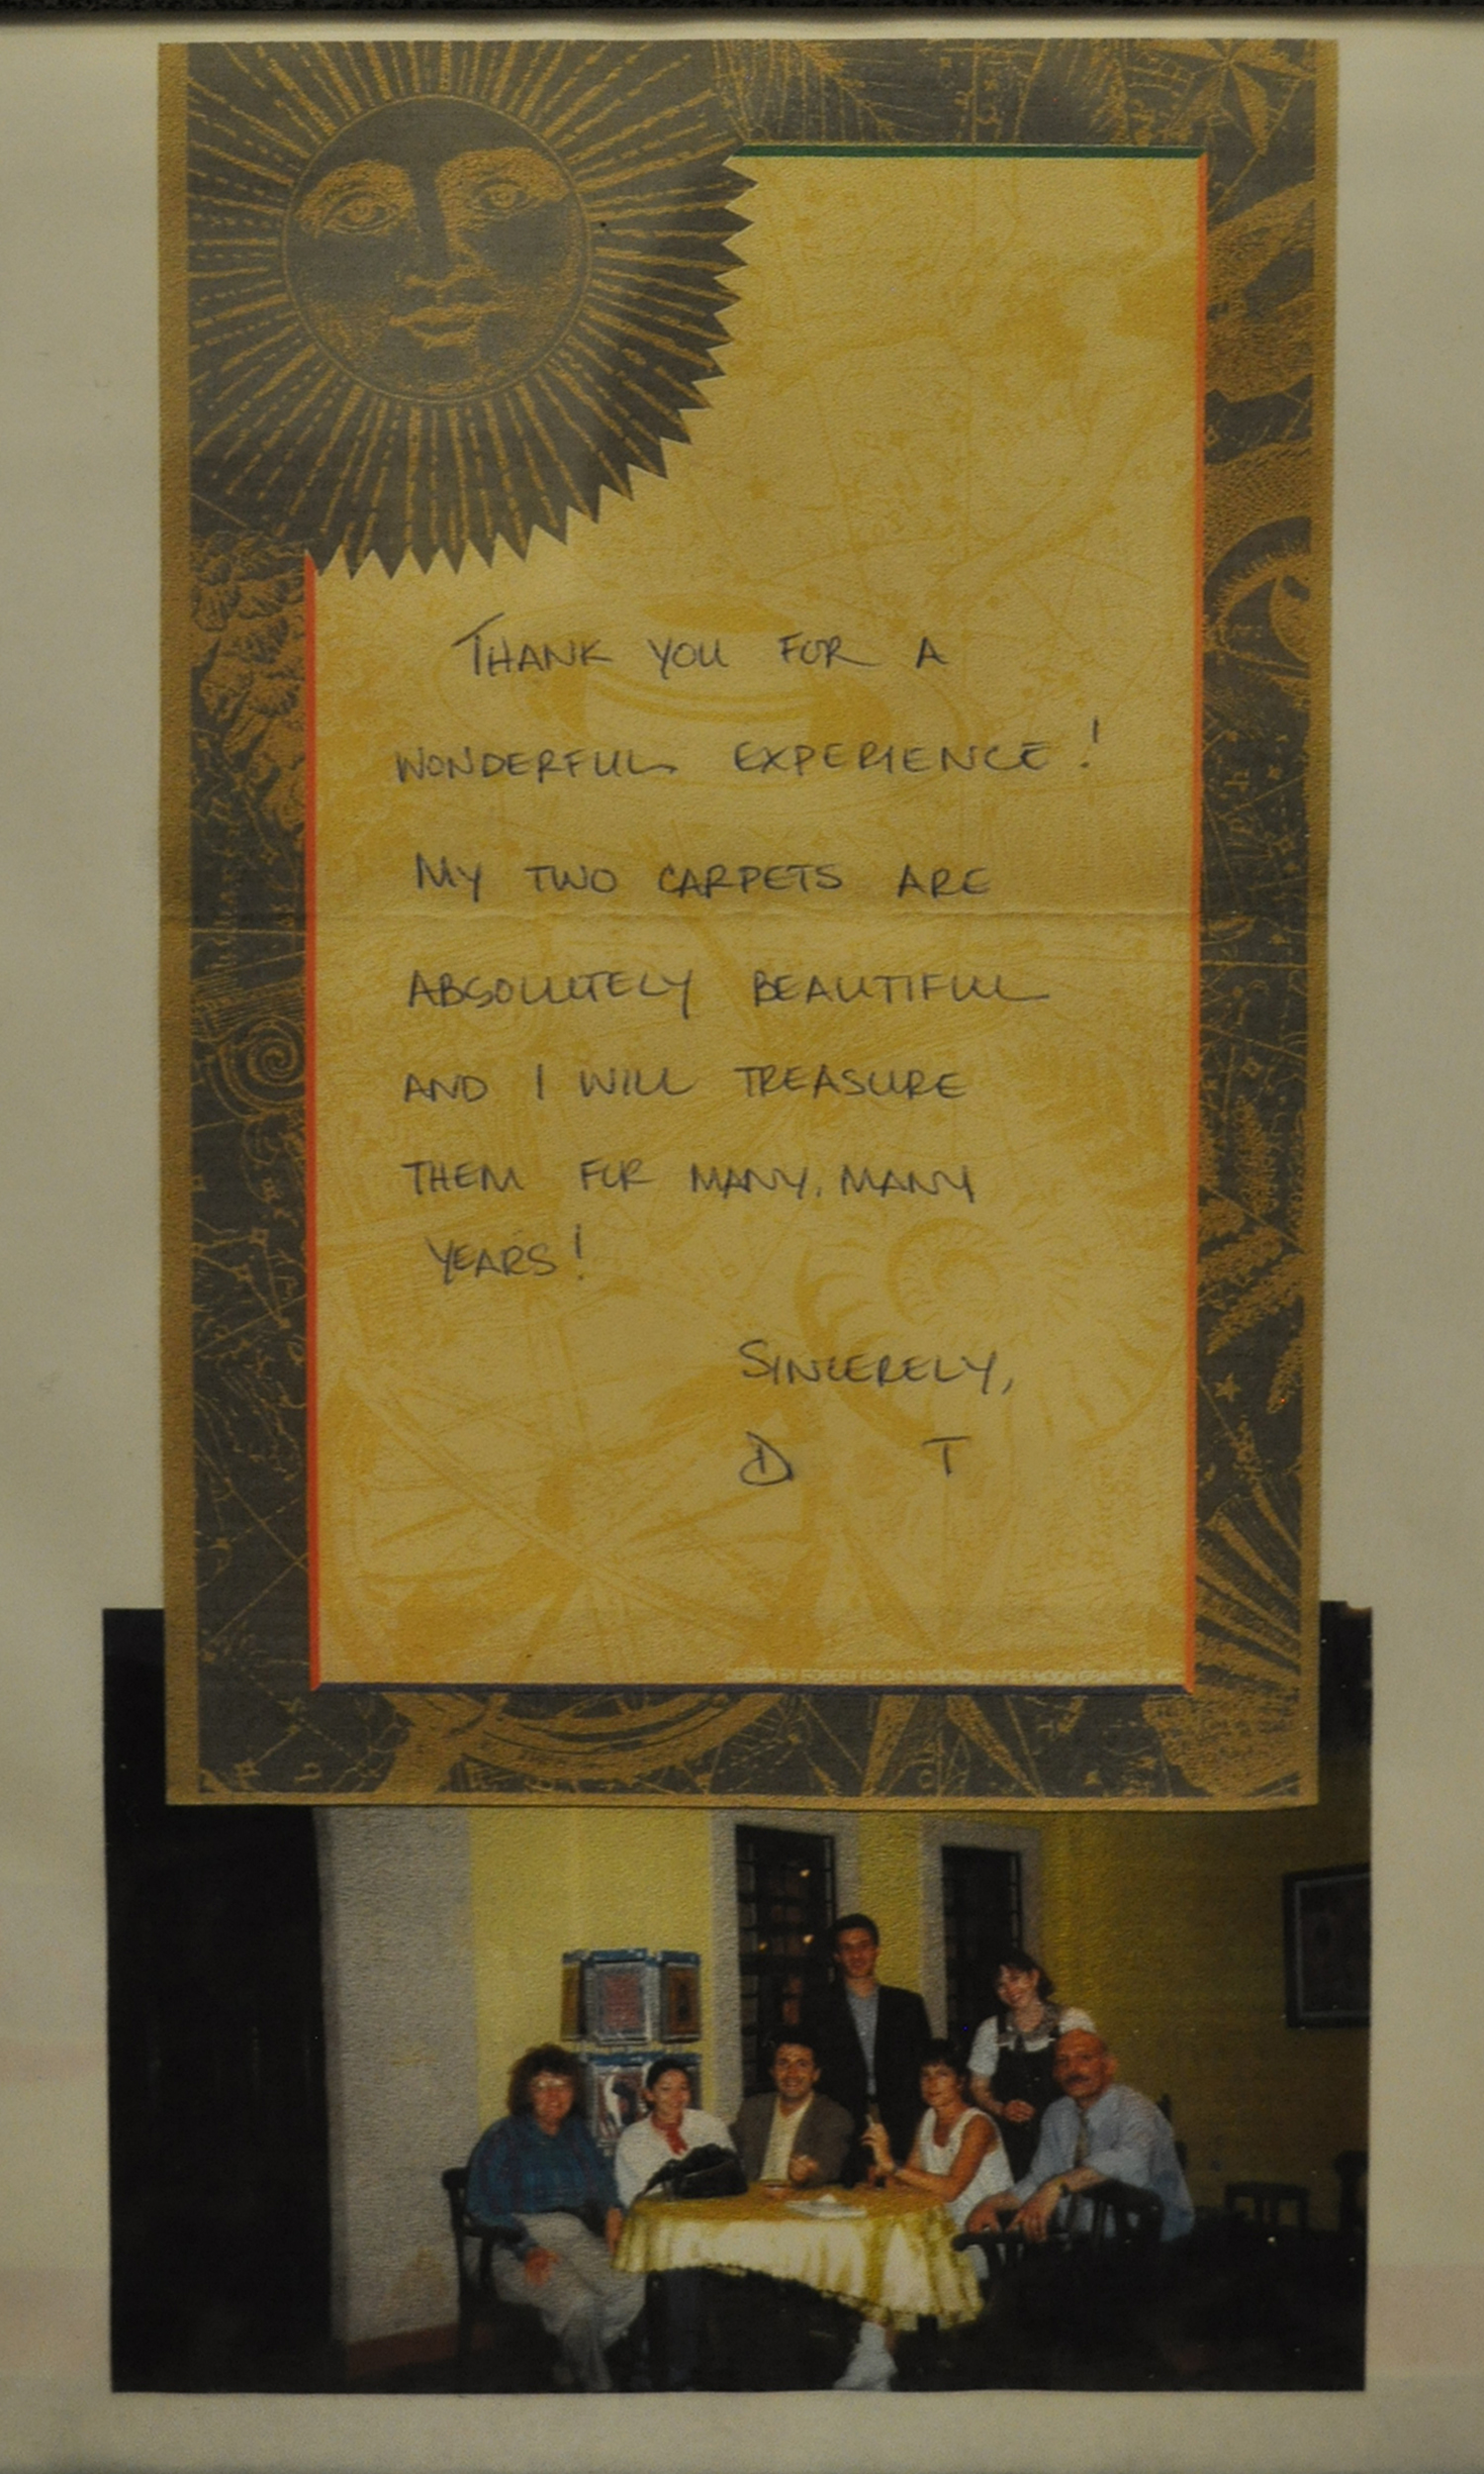 THANK YOU FOR A
WONDERFUL EXPERIENCE!
MY TWO CARPETS ARE
ABSOLUTELY BEAUTIFUL
AND I WILL TREASURE
THEM FOR MANY, MANY
YEARS!
SINCERELY,
D T
DESIGN BY ROBERT PAPER MOON GRAPHICS